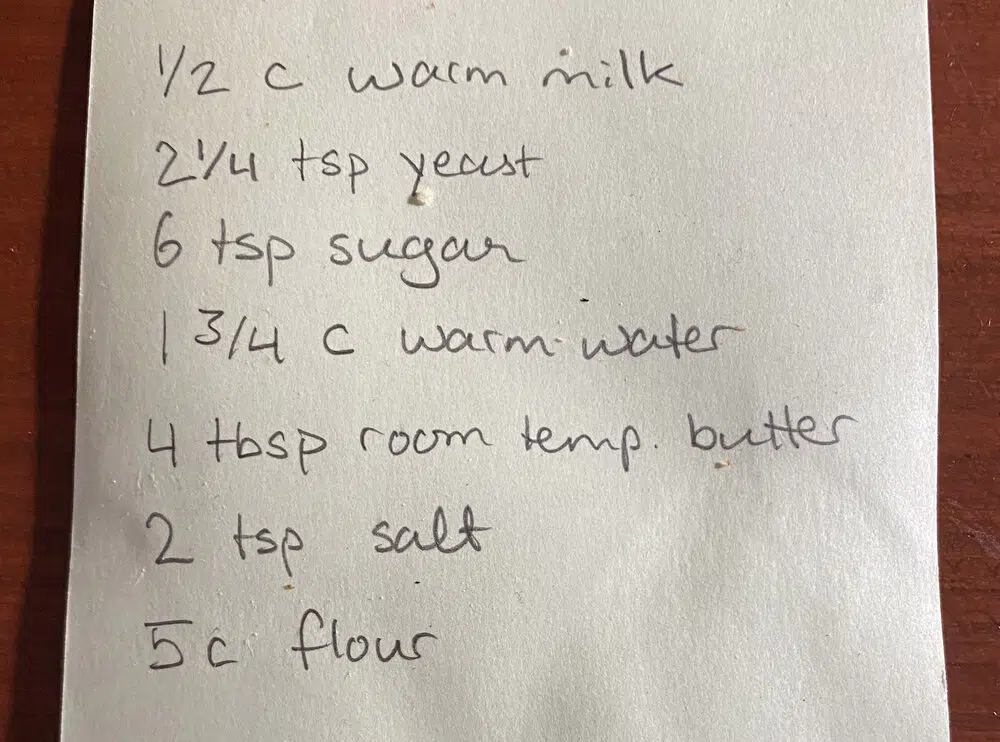 1/2 c warm milk
2 1/4 tsp yeast
6 tsp sugar
1 3/4 c warm water
4 tbsp room temp. butter
2 tsp salt
5 c flour